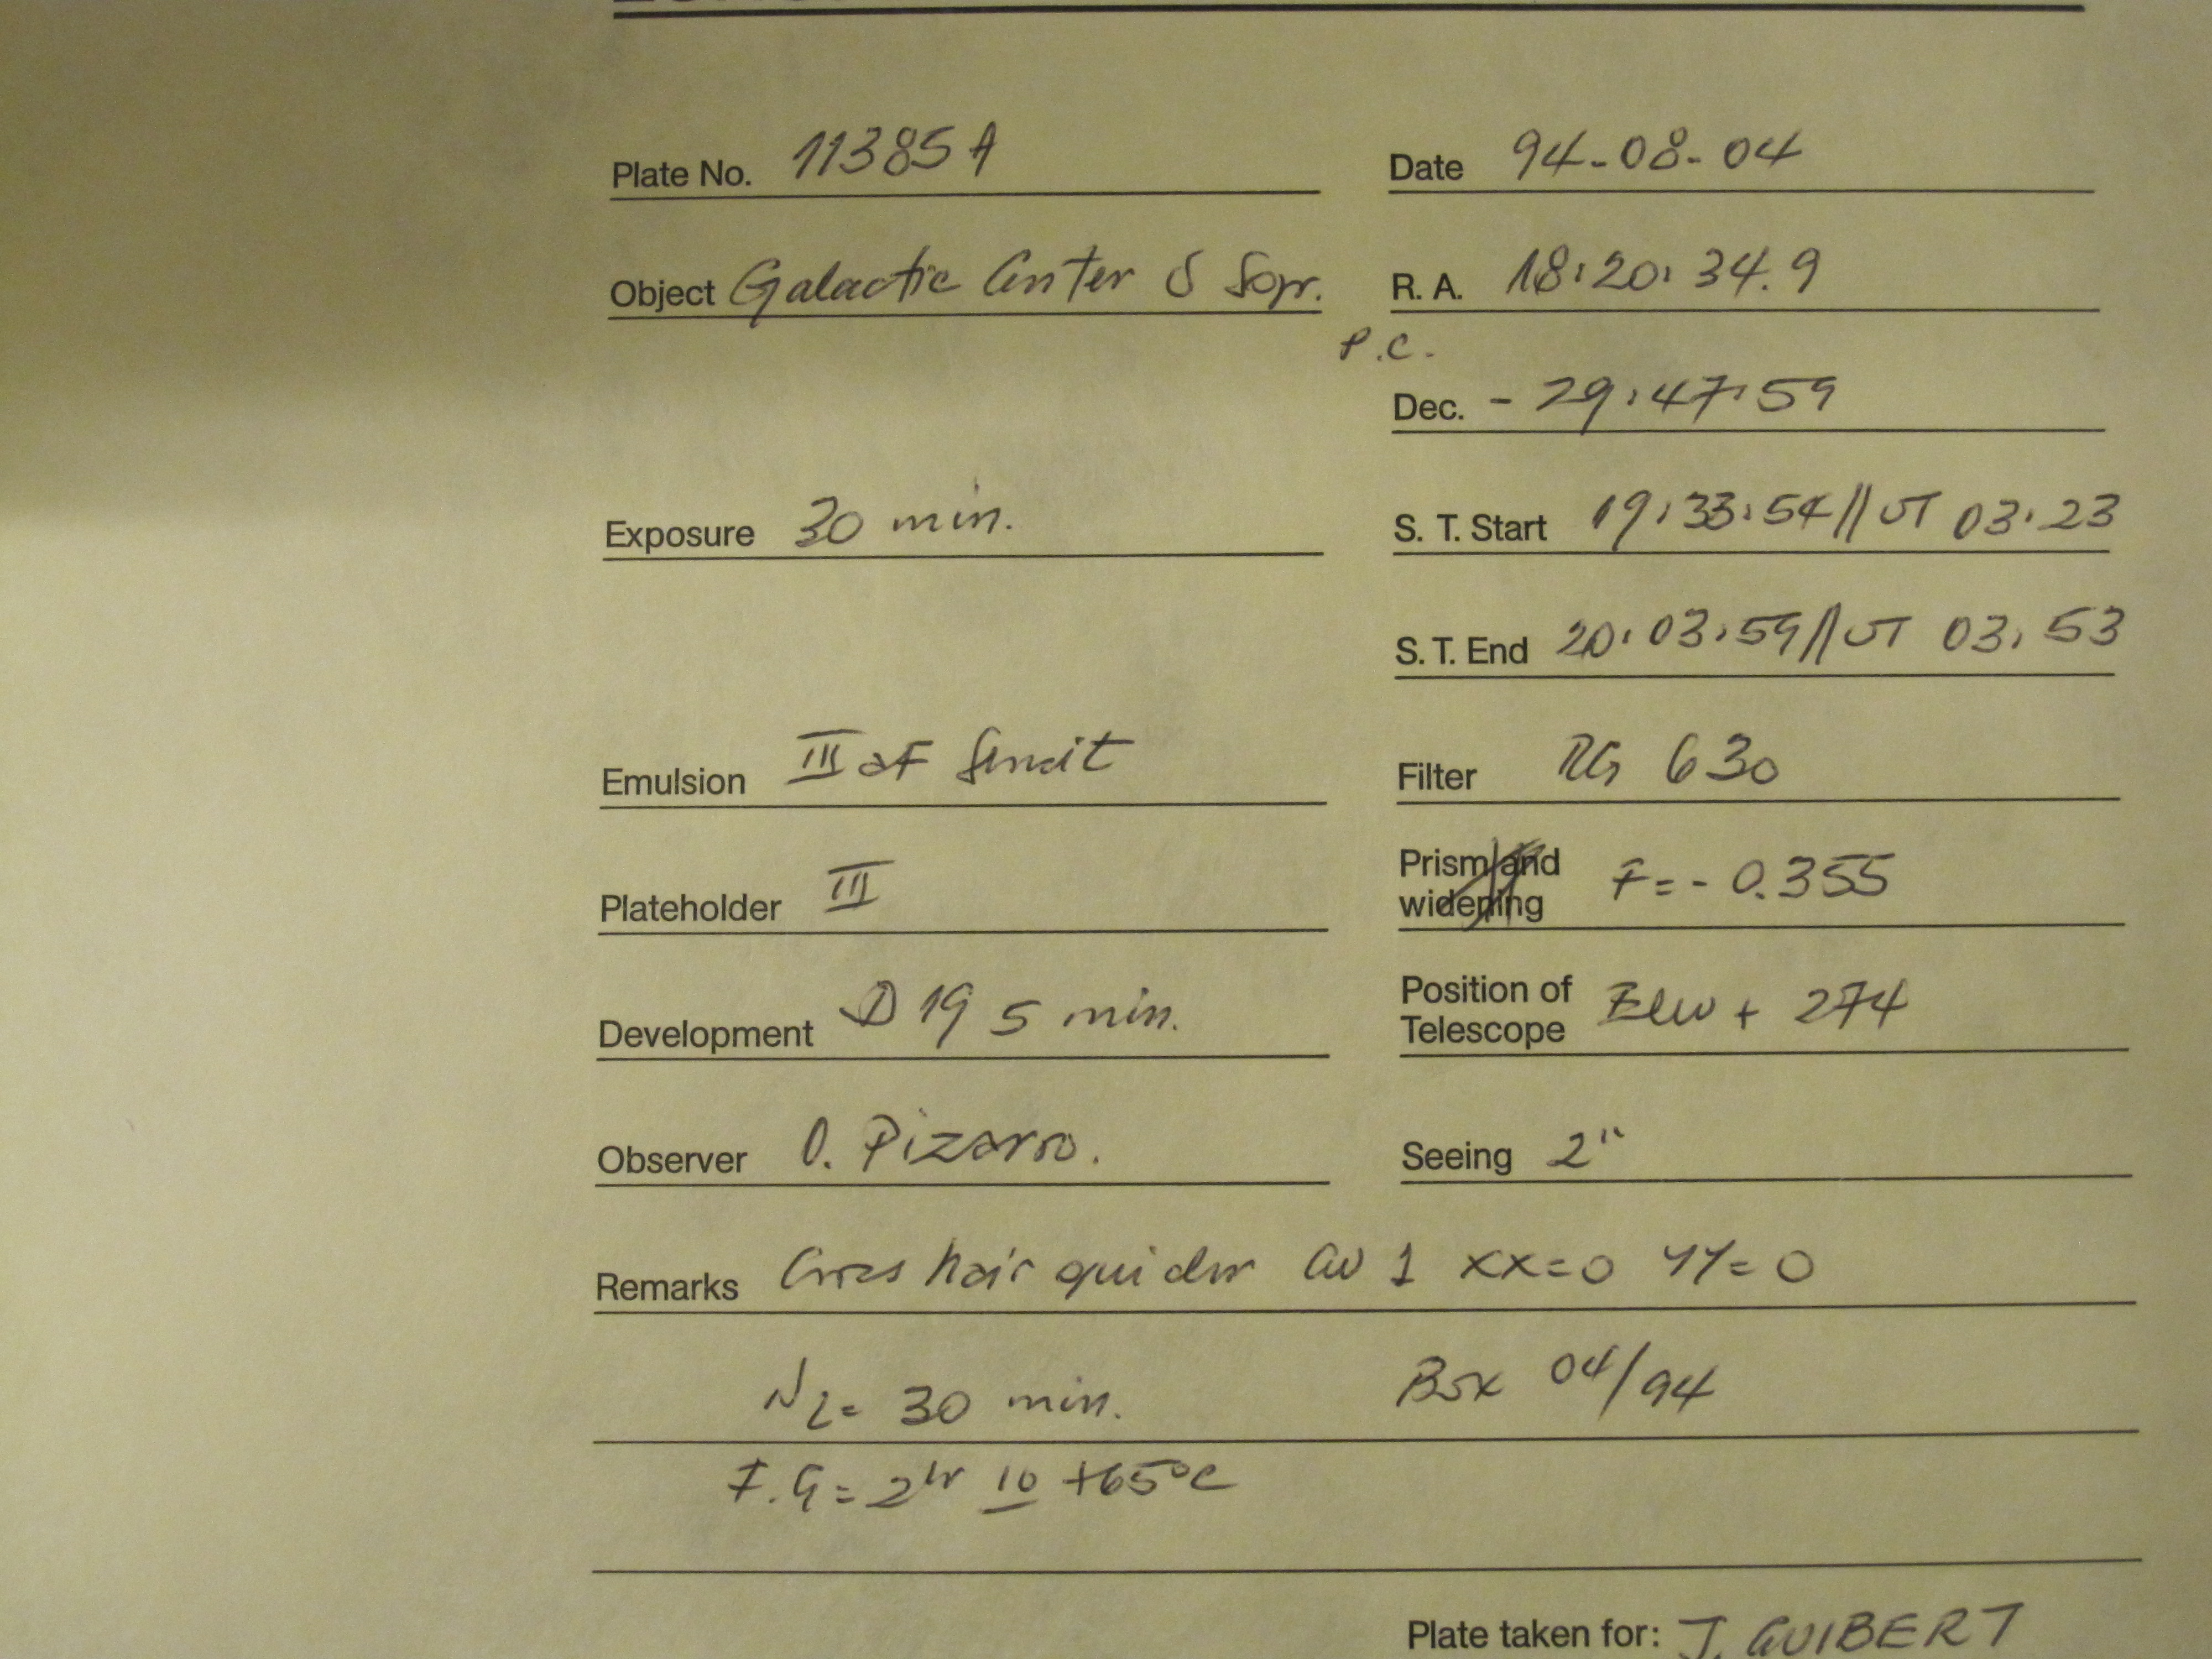 Plate No. 11385A Date 94-08-04
Object Galactic Center R.A. 18:20:34.9
P.C.
Dec. - 29:47:59
Exposure 30 min. S. T. Start 19:33:54 // UT 03:23
S. T. End 20:03:59 // UT 03:53
Emulsion III aF Filter RG 630
Plateholder III Prism and widening F = - 0.355
Development D 19 5 min. Position of Telescope + 274
Observer O. Pizarro. Seeing 2"
Remarks Cross hair guider 1 XX=0 YY=0
N2= 30 min. Box 04/94
F.G = 2hr 10 +65°C
Plate taken for: J. GUIBERT